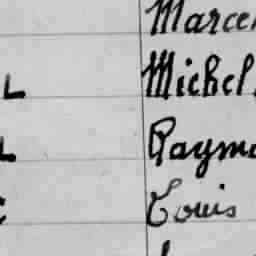 Marce
L Michel
L Raym
Louis